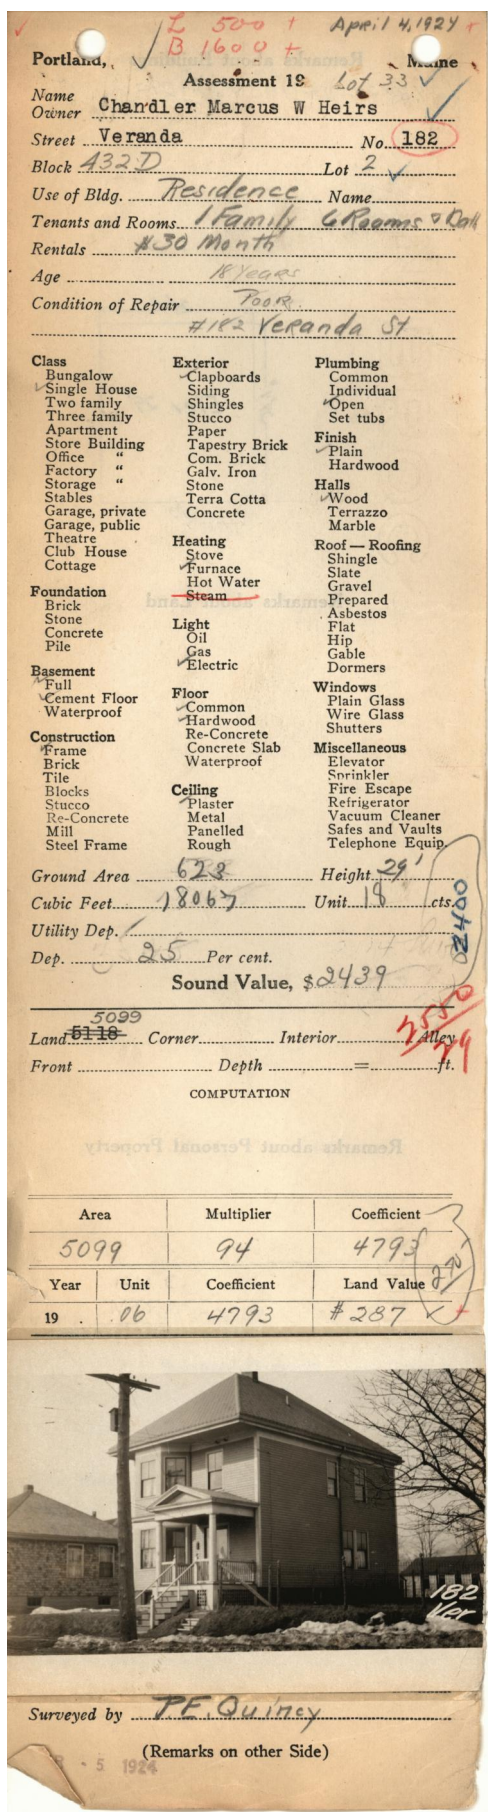 L 500 +
April 4, 1924 +
B 1600 +
Portland, Maine
Assessment 19 Lot 33
Name
Owner Chandler Marcus W Heirs
Street Veranda No. 182
Block 432D Lot 2
Use of Bldg. Residence Name
Tenants and Rooms 1 Family 6 Rooms & Bath
Rentals #30 Month
Age 18 Years
Condition of Repair Poor
#182 Veranda St
Class
Bungalow
Single House
Two family
Three family
Apartment
Store Building
Office "
Factory "
Storage "
Stables
Garage, private
Garage, public
Theatre
Club House
Cottage
Foundation
Brick
Stone
Concrete
Pile
Basement
Full
Cement Floor
Waterproof
Construction
Frame
Brick
Tile
Blocks
Stucco
Re-Concrete
Mill
Steel Frame
Exterior
Clapboards
Siding
Shingles
Stucco
Paper
Tapestry Brick
Com. Brick
Galv. Iron
Stone
Terra Cotta
Concrete
Heating
Stove
Furnace
Hot Water
Steam
Light
Oil
Gas
Electric
Floor
Common
Hardwood
Re-Concrete
Concrete Slab
Waterproof
Ceiling
Plaster
Metal
Panelled
Rough
Plumbing
Common
Individual
Open
Set tubs
Finish
Plain
Hardwood
Halls
Wood
Terrazzo
Marble
Roof — Roofing
Shingle
Slate
Gravel
Prepared
Asbestos
Flat
Hip
Gable
Dormers
Windows
Plain Glass
Wire Glass
Shutters
Miscellaneous
Elevator
Sprinkler
Fire Escape
Refrigerator
Vacuum Cleaner
Safes and Vaults
Telephone Equip.
Ground Area 623 Height 29'
Cubic Feet 18067 Unit 18 cts.
2400
Utility Dep.
Dep. 25 Per cent.
Sound Value, $2439
2550
29
5099
Land 5118 Corner Interior Alley
Front Depth = ft.
COMPUTATION
Area Multiplier Coefficient
5099 94 4793
270
Year Unit Coefficient Land Value
19 . .06 4793 # 287
182
Ver
Surveyed by P.E. Quincy
(Remarks on other Side)
5 1924